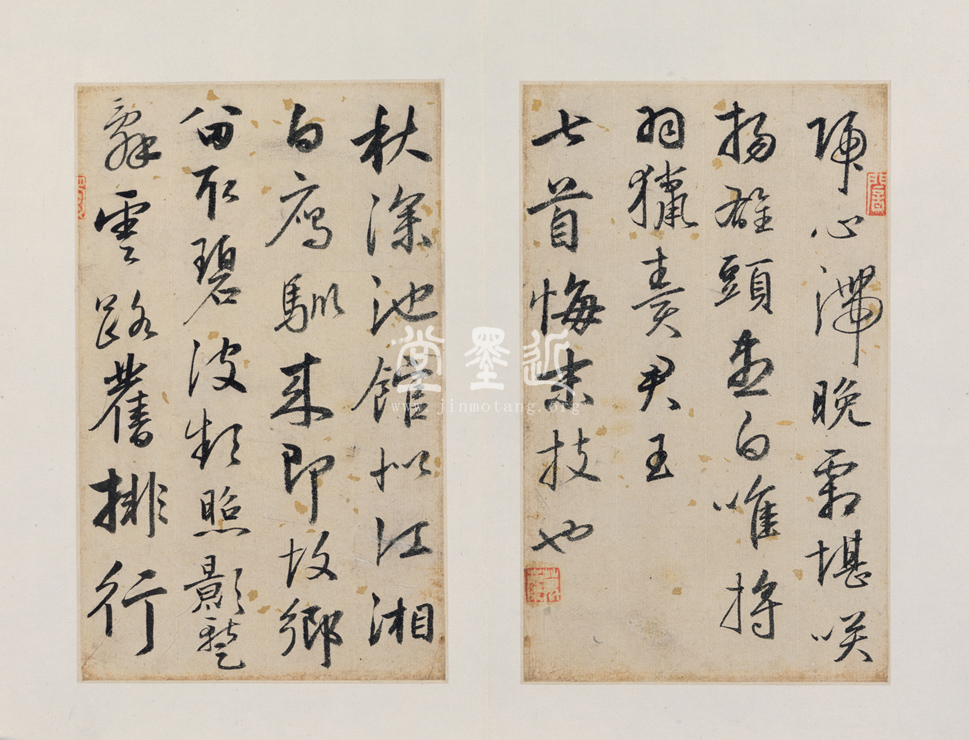 歸心滯晚霜堪咲
揚雄頭盡白唯將
羽獵賣君王
七首悔末技也
秋深池館似江湘
白鴈馴來即故鄉
留取碧波頻照影蹔
辭雲路舊排行
近墨堂
www.jinmotang.org